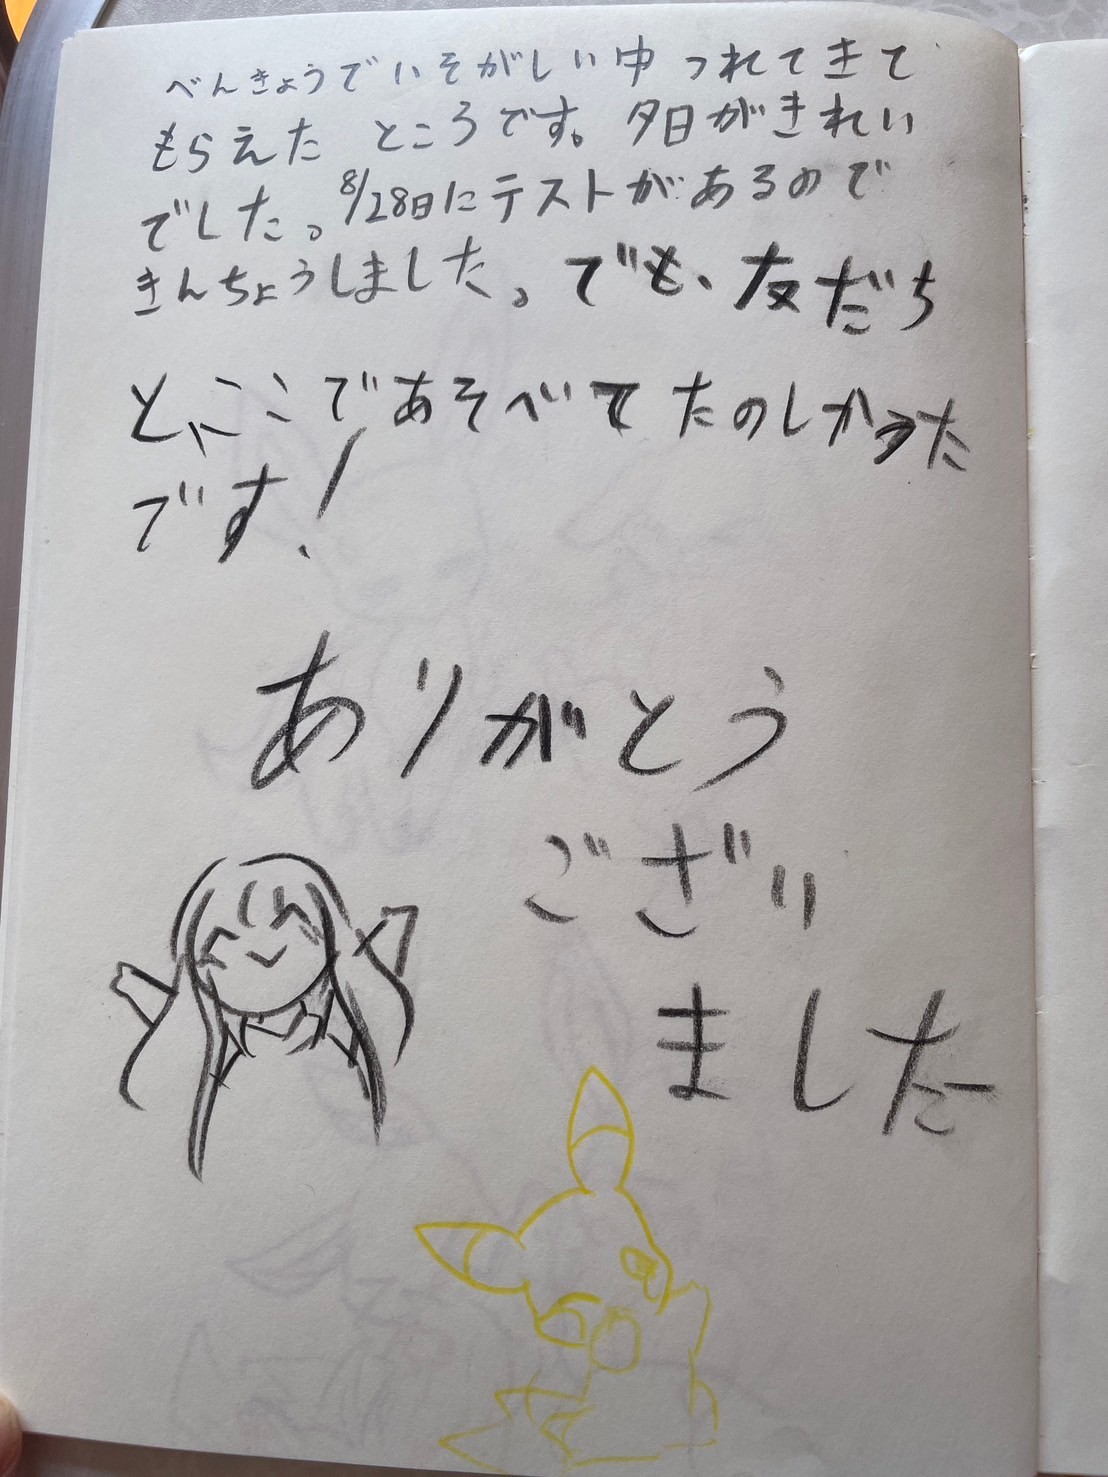 べんきょうでいそがしい中 つれてきて
もらえた ところです。夕日がきれい
でした。8/28日にテストがあるので
きんちょうしました。でも、友だち
と、ここであそべて たのしかった
です!
ありがとう
ござい
ました